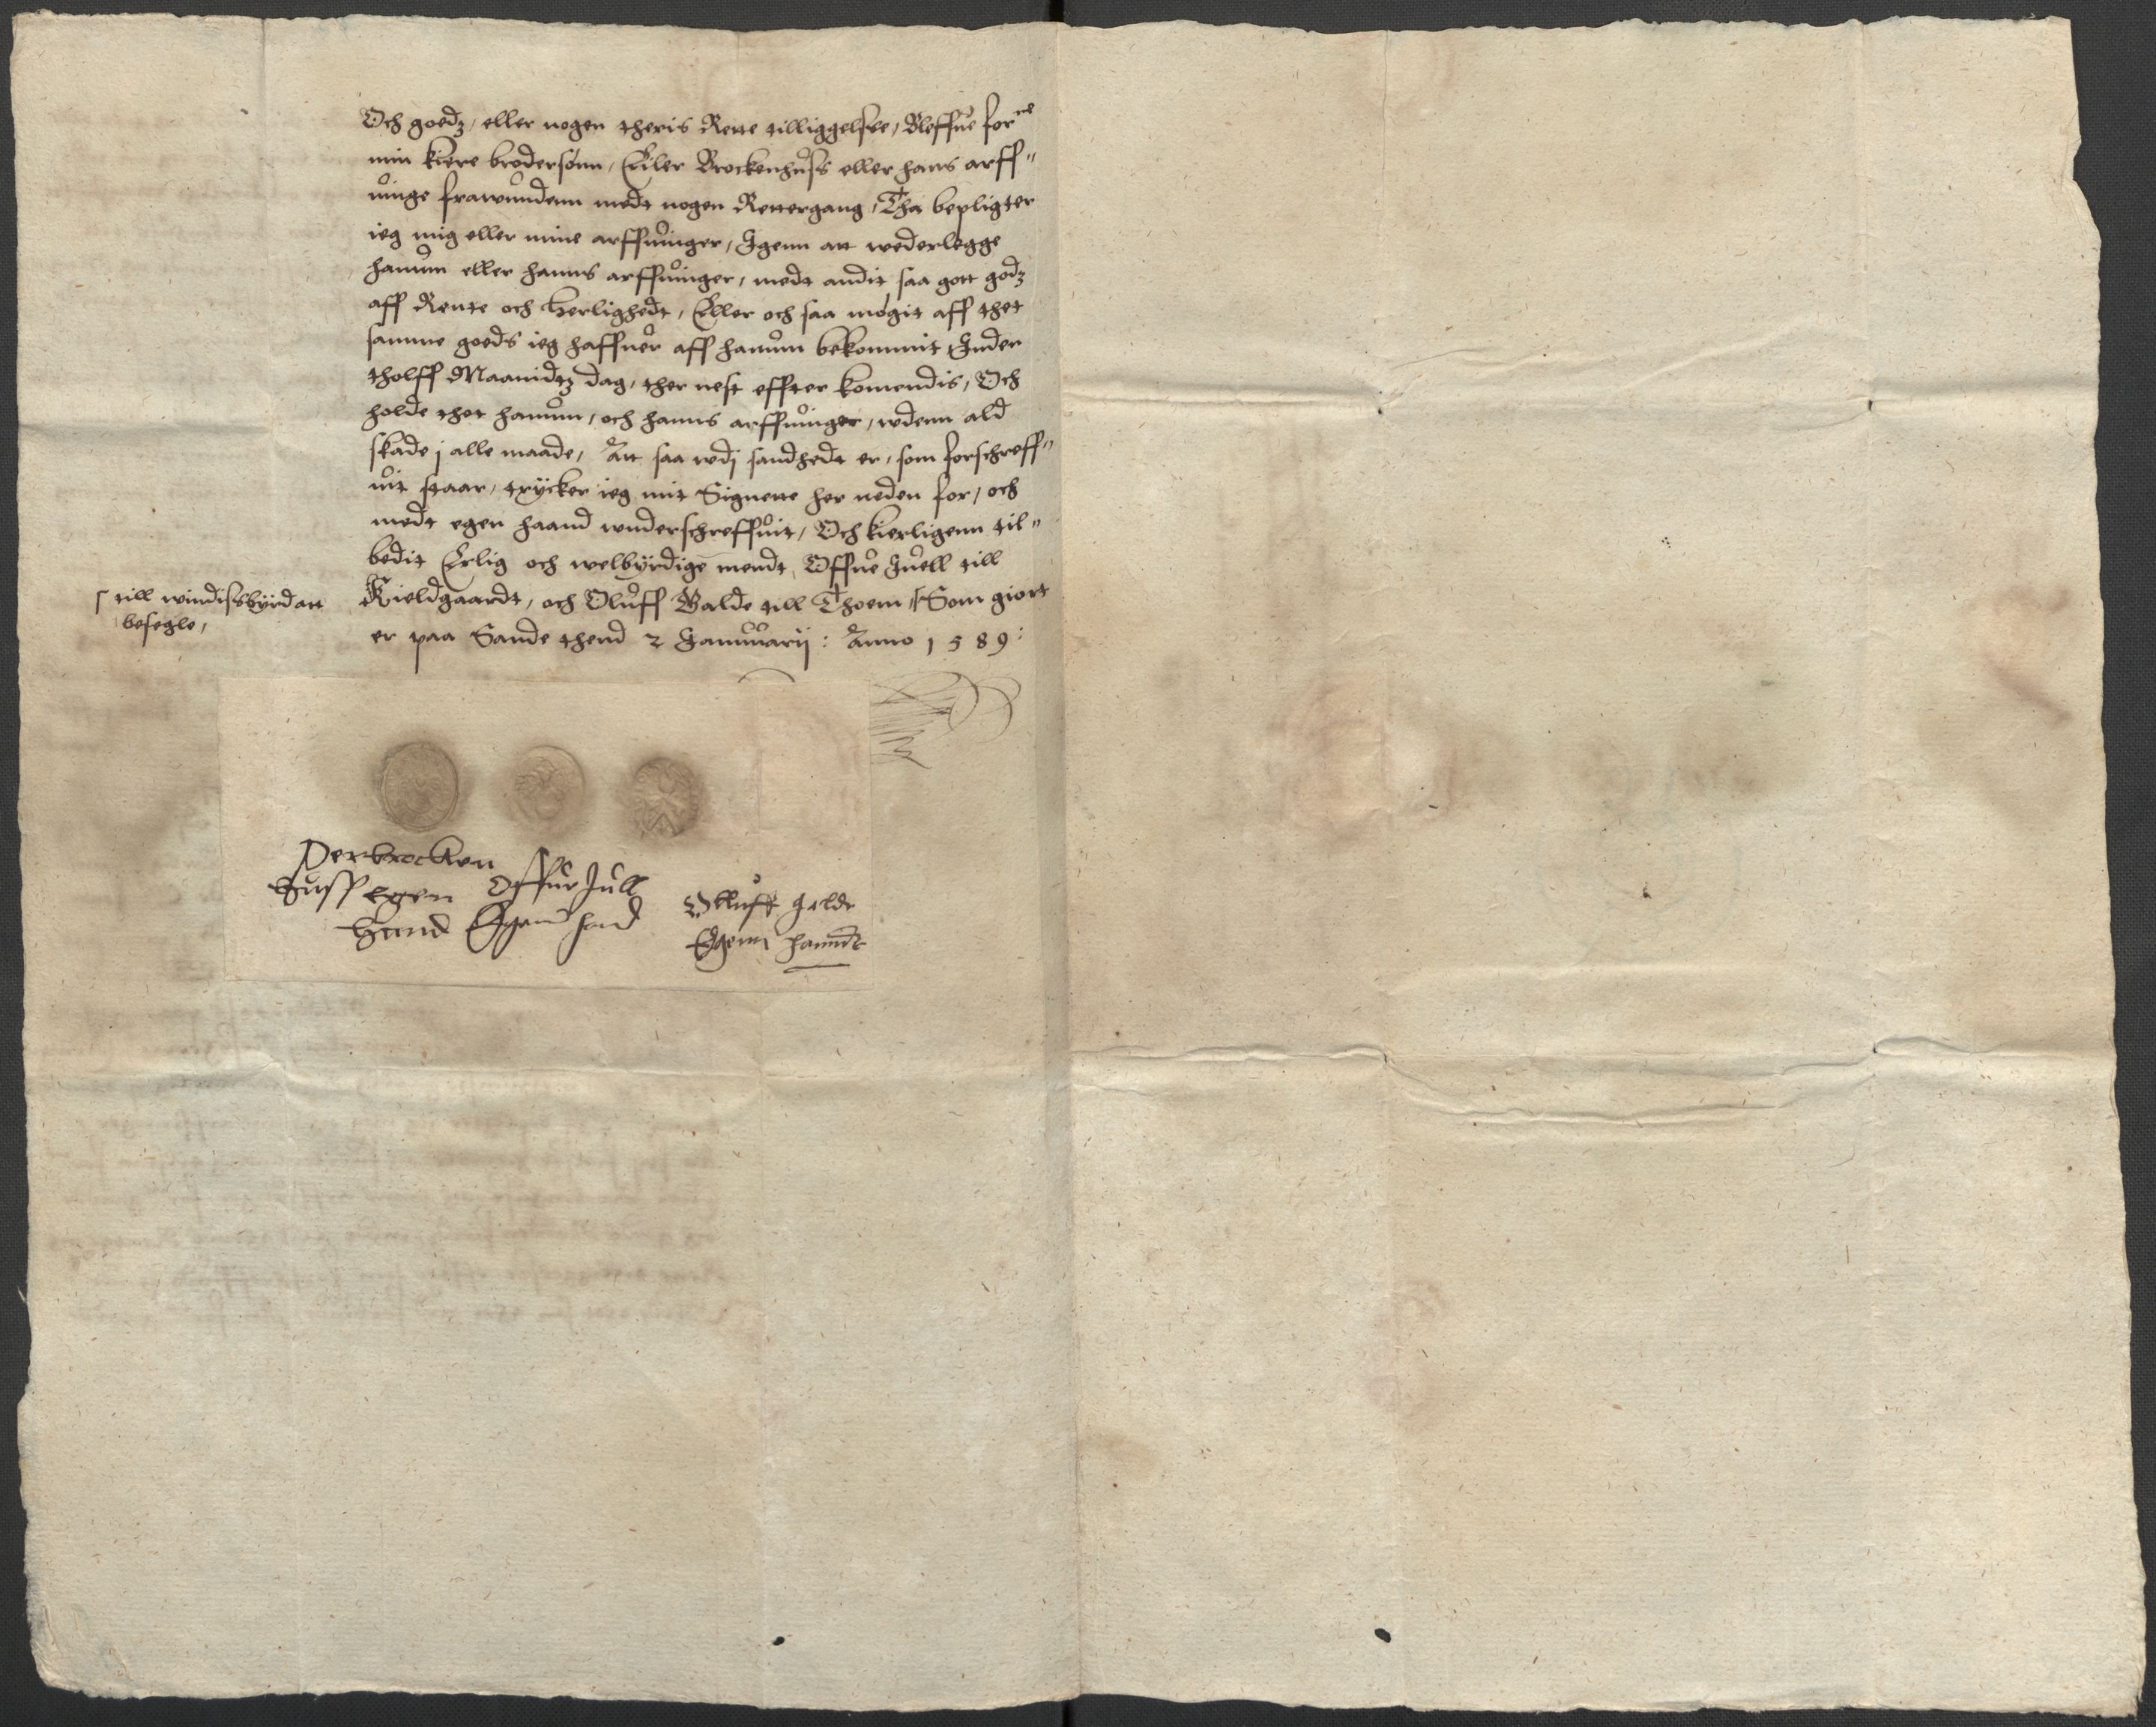 Och goedz, eller nogen theris Rette tilliggelsse, Bleffue for^ne
min kiere brodersønn, Eiler Brockenhuss eller hans arff"
uinge frawundenn medt nogen Rettergang, Tha bepligter
ieg mig eller mine arffuinger, Igenn att wederlegge
hanum eller hanns arffuinger, medt andit saa gott godz
aff Rente och herlighedt, Eller och saa møgit aff thet
samme goeds ieg haffuer aff hanum bekommit, Inden
tholff Maanidtz dag, ther nest effter komendis, Och
holde thet hanum, och hanns arffuinger, wdenn ald
skade j alle maade, Att saa wdj sandhedt er, som forschreff"
uit staar, trÿcker ieg mit Signette her neden for, och
medt egen haand wnderschreffuit, Och kierligenn til"
bedit Erlig och welbÿrdige mendt, Offue Juell till
Kieldgaardt, och Oluff Galde till Thoem, ⌈Som giort
⌈ till windissbÿrd att
besegle,
er paa Sande thend 2 Januuarij : Anno 1589 :
Per brocken
huss egen
hand
Offue Juell
Egen hand
Olluff galde
Egenn hanndt